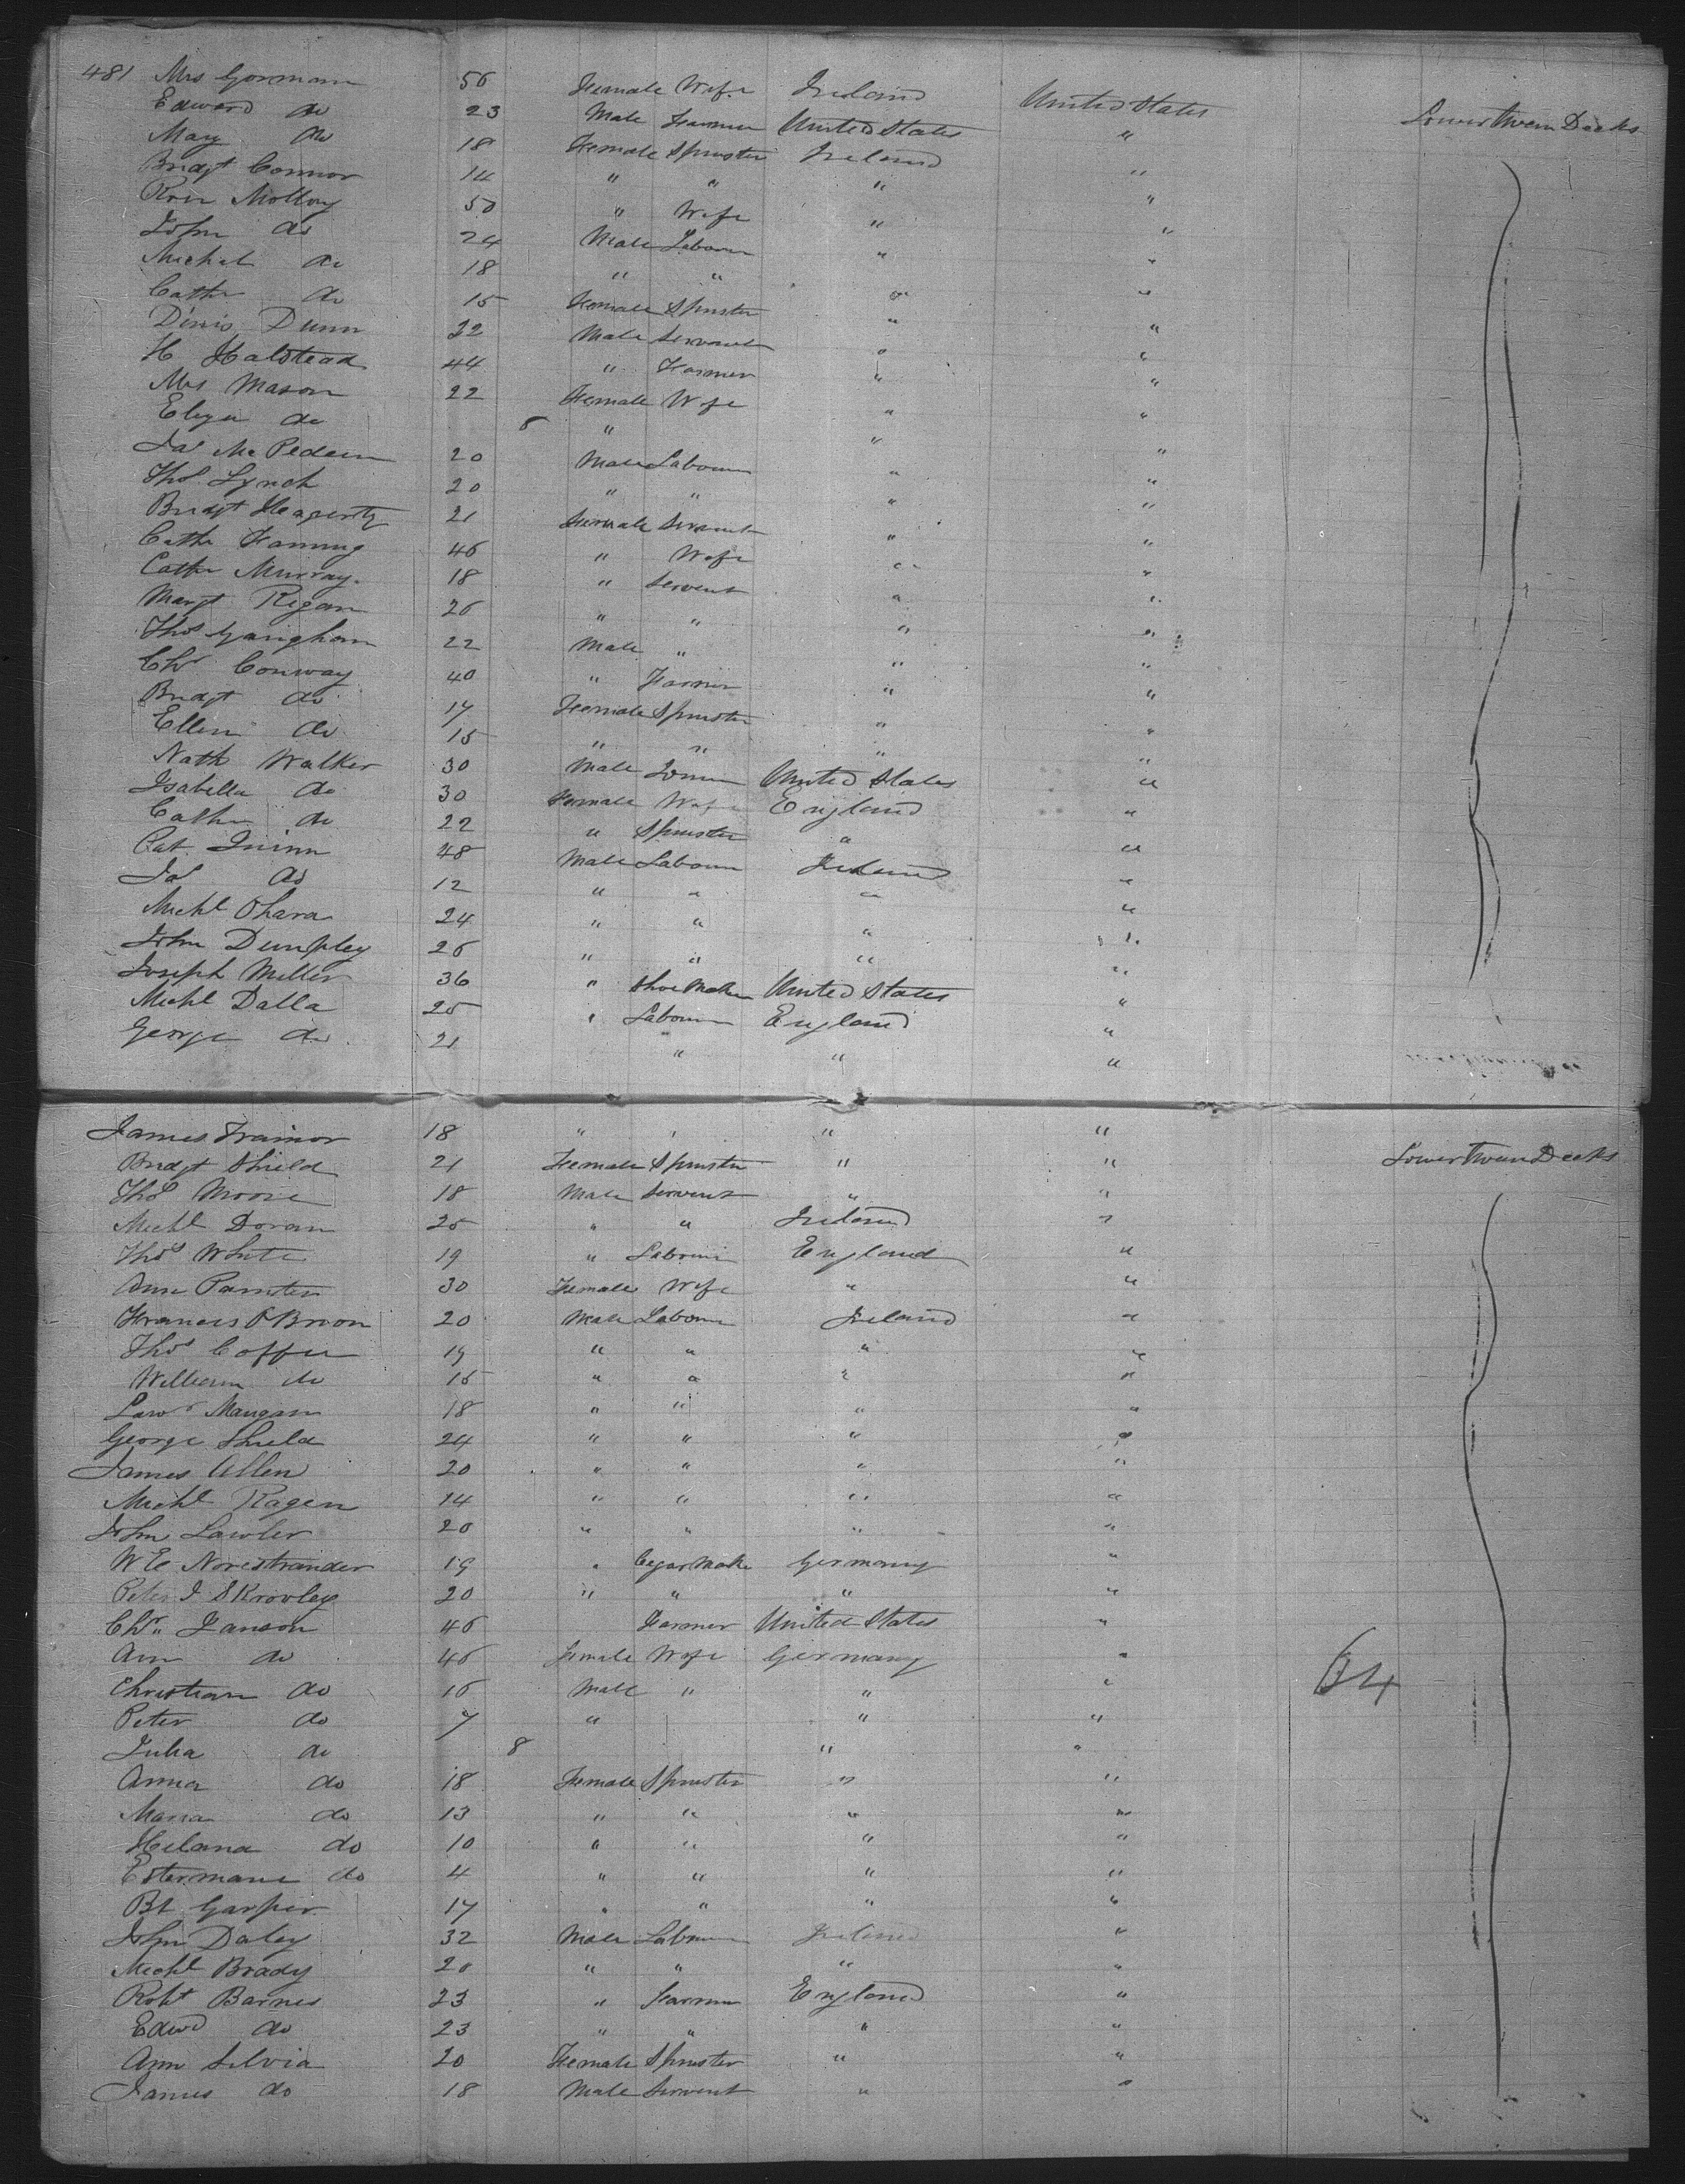 481 Mrs Gorman 56 Female Wife Ireland United States Lower Tween Decks
Edward do 23 Male Farmer United States "
Mary do 18 Female Spinster Ireland "
Bridgt Connor 14 " " " "
Molloy 50 " Wife " "
John do 24 Male Labourer " "
Michel do 18 " " " "
Cathe do 15 Female Spinster " "
Dinis Dunn 22 Male Servant " "
H Halstead 44 " Farmer " "
Mrs Mason 22 Female Wife " "
Eliza do 8 " " "
Jas 20 Male Labourer " "
Thos Lynch 20 " " " "
Bridgt Hagerty 21 Female Servant " "
Cathe Fanning 46 " Wife " "
Cathe Murray 18 " Servent " "
Margt Regan 26 " " " "
Thos 22 Male " " "
Chs Conway 40 " Farmer " "
Bridgt do 17 Female Spinster " "
Ellen do 15 " " " "
Nath Walker 30 Male United States "
Isabella do 30 Female Wife England "
Cathe do 22 " Spinster " "
Pat Quinn 48 Male Labourer Ireland "
Jas do 12 " " " "
Michl Ohara 24 " " " "
John Dumpley 26 " " " "
Joseph Miller 36 " Shoe Maker United States "
Michl Dalla 25 " Labourer England "
George do 21 " " "
James Trainor 18 " " " "
Bridgt Shield 21 Female Spinster " " Lower Tween Decks
Thos Moore 18 Male Servent " "
Michl Doran 25 " " Ireland "
Thos White 19 " Labourer England "
Ann Painter 30 Female Wife " "
Francis O Brion 20 Male Labourer Ireland "
Thos Coffee 19 " " " "
William do 15 " " " "
Lawr Mangan 18 " " " "
George Shield 24 " " " "
James Allen 20 " " " "
Michl Ragen 14 " " " "
John Lawler 20 " " " "
W E Norestrander 19 " Cegar Make Germany "
Peter J 20 " " " "
Chr Janson 46 Farmer United States "
Ann do 46 Female Wife Germany "
Christian do 16 Male " " "
64
Peter do 7 " " "
Julia do 8 " "
Anna do 18 Female Spinster " "
Maria do 13 " " " "
Helana do 10 " " " "
Estermane do 4 " " " "
Bt Garper 17 " " " "
John Daley 32 Male Labourer Ireland "
Michl Brady 20 " " " "
Robt Barnes 23 " Farmer England "
Edwd do 23 " " " "
Ann Silvia 20 Female Spinster " "
James do 18 Male Servent " "